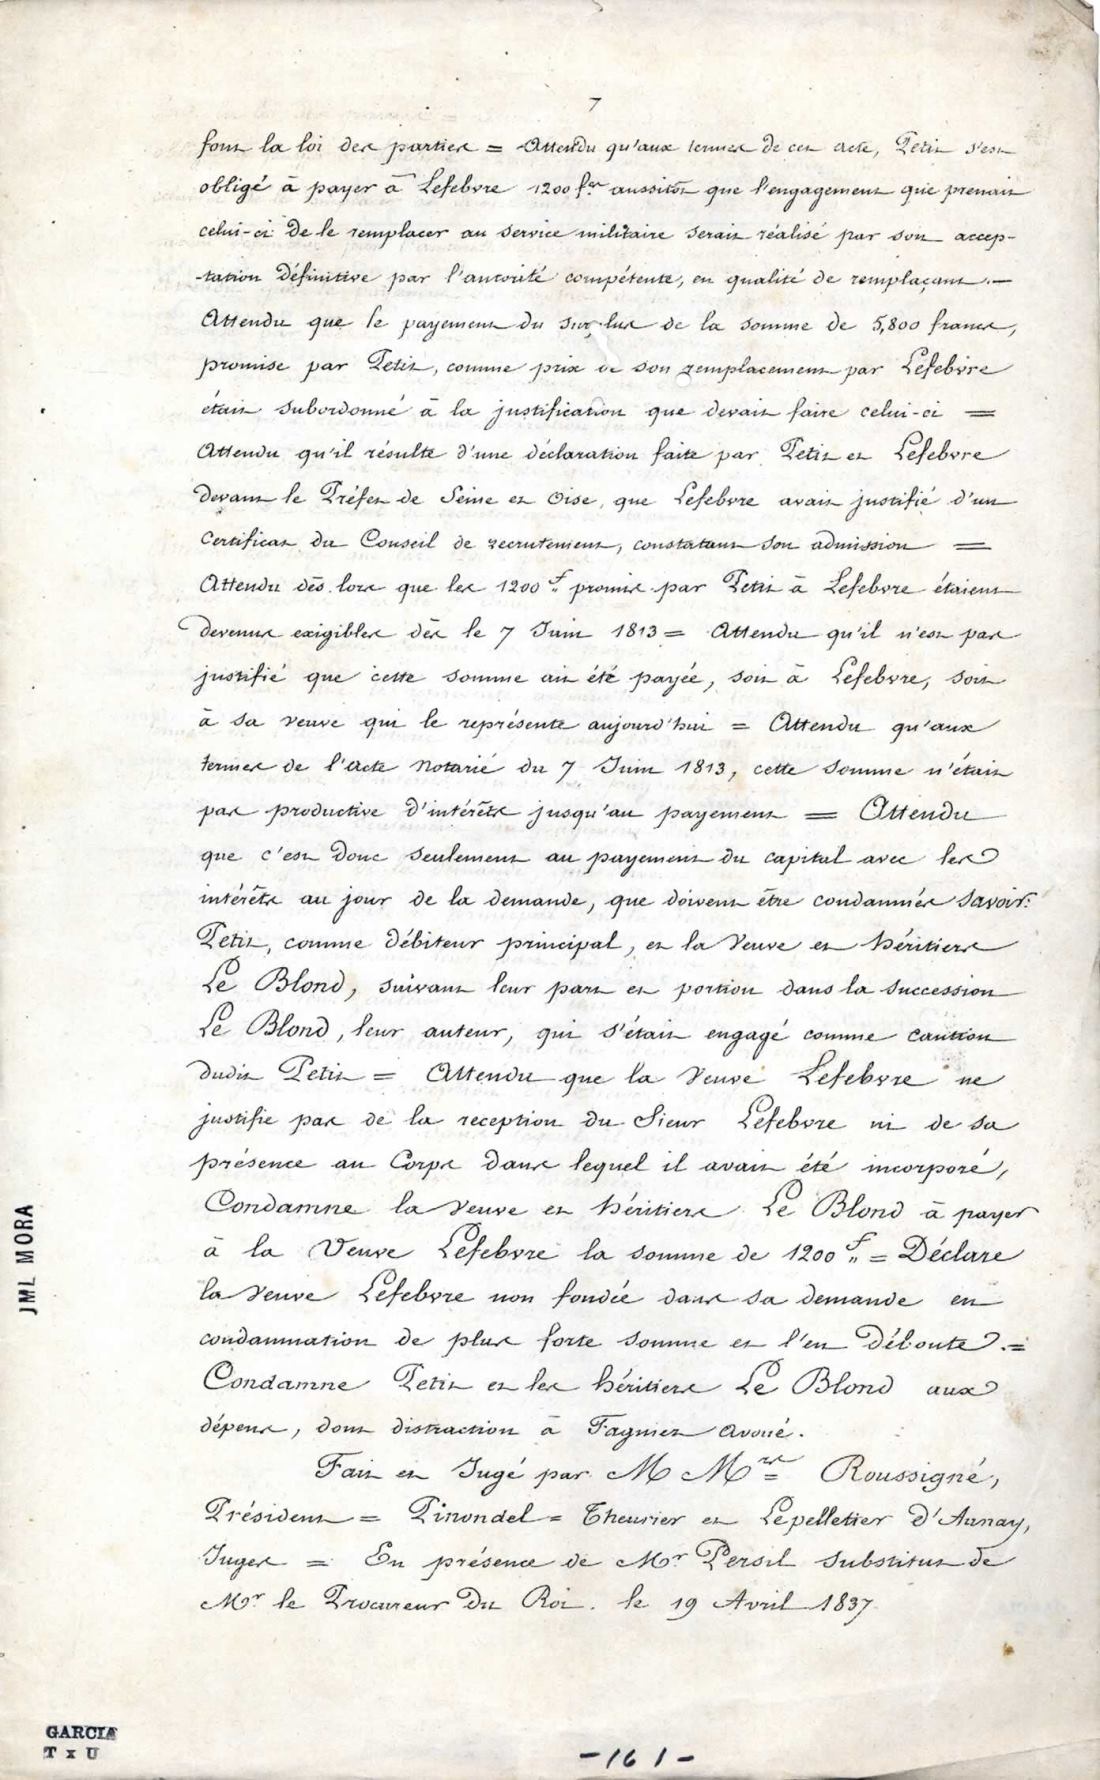 7
font la loi des parties = Attendu qu'aux termes de cet acte, Petit s'est
obligé à payer à Lefebvre 1200 frs aussitôt que l'engagement que prenait
celui-ci de le remplacer au service militaire serait réalisé par son accep-
-tation définitive par l'autorité compétente, en qualité de remplaçant. —
Attendu que le payement du surplus de la somme de 5,800 francs,
promise par Petit, comme prix de son remplacement par Lefebvre
était subordonné à la justification que devait faire celui-ci =
Attendu qu'il résulte d'une déclaration faite par Petit et Lefebvre
devant le Préfet de Seine et Oise, que Lefebvre avait justifié d'un
Certificat du Conseil de recrutement, constatant son admission =
Attendu dès lors que les 1200 f. promis par Petit à Lefebvre étaient
devenus exigibles dès le 7 Juin 1813 = Attendu qu'il n'est pas
justifié que cette somme ait été payée, soit à Lefebvre, soit
à sa veuve qui le représente aujourd'hui = Attendu qu'aux
termes de l'acte notarié du 7 Juin 1813, cette somme n'était
pas productive d'intérêts jusqu'au payement = Attendu
que c'est donc seulement au payement du capital avec les
intérêts au jour de la demande, que doivent être condamnés savoir:
Petit, comme débiteur principal, et la Veuve et héritiers
Le Blond, suivant leur part et portion dans la succession
Le Blond, leur auteur, qui s'était engagé comme caution
dudit Petit = Attendu que la Veuve Lefebvre ne
justifie pas de la reception du Sieur Lefebvre ni de sa
présence au Corps dans lequel il avait été incorporé,
Condamne la Veuve et héritiers Le Blond à payer
à la Veuve Lefebvre la somme de 1200 f. = Déclare
la Veuve Lefebvre non fondée dans sa demande en
condamnation de plus forte somme et l'en déboute. =
Condamne Petit et les héritiers Le Blond aux
dépens, dont distraction à Fagniez avoué.
Fait et Jugé par M Mrs Roussigné,
Président = Pinondel = Theurier et Lepelletier d'Aunay,
Juges = En présence de Mr Persil substitut de
Mr le Procureur du Roi. le 19 Avril 1837
JML MORA
GARCIA
T x U
-161-